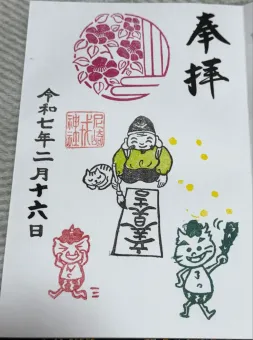 奉拝
尼崎戎神社
令和七年二月十六日